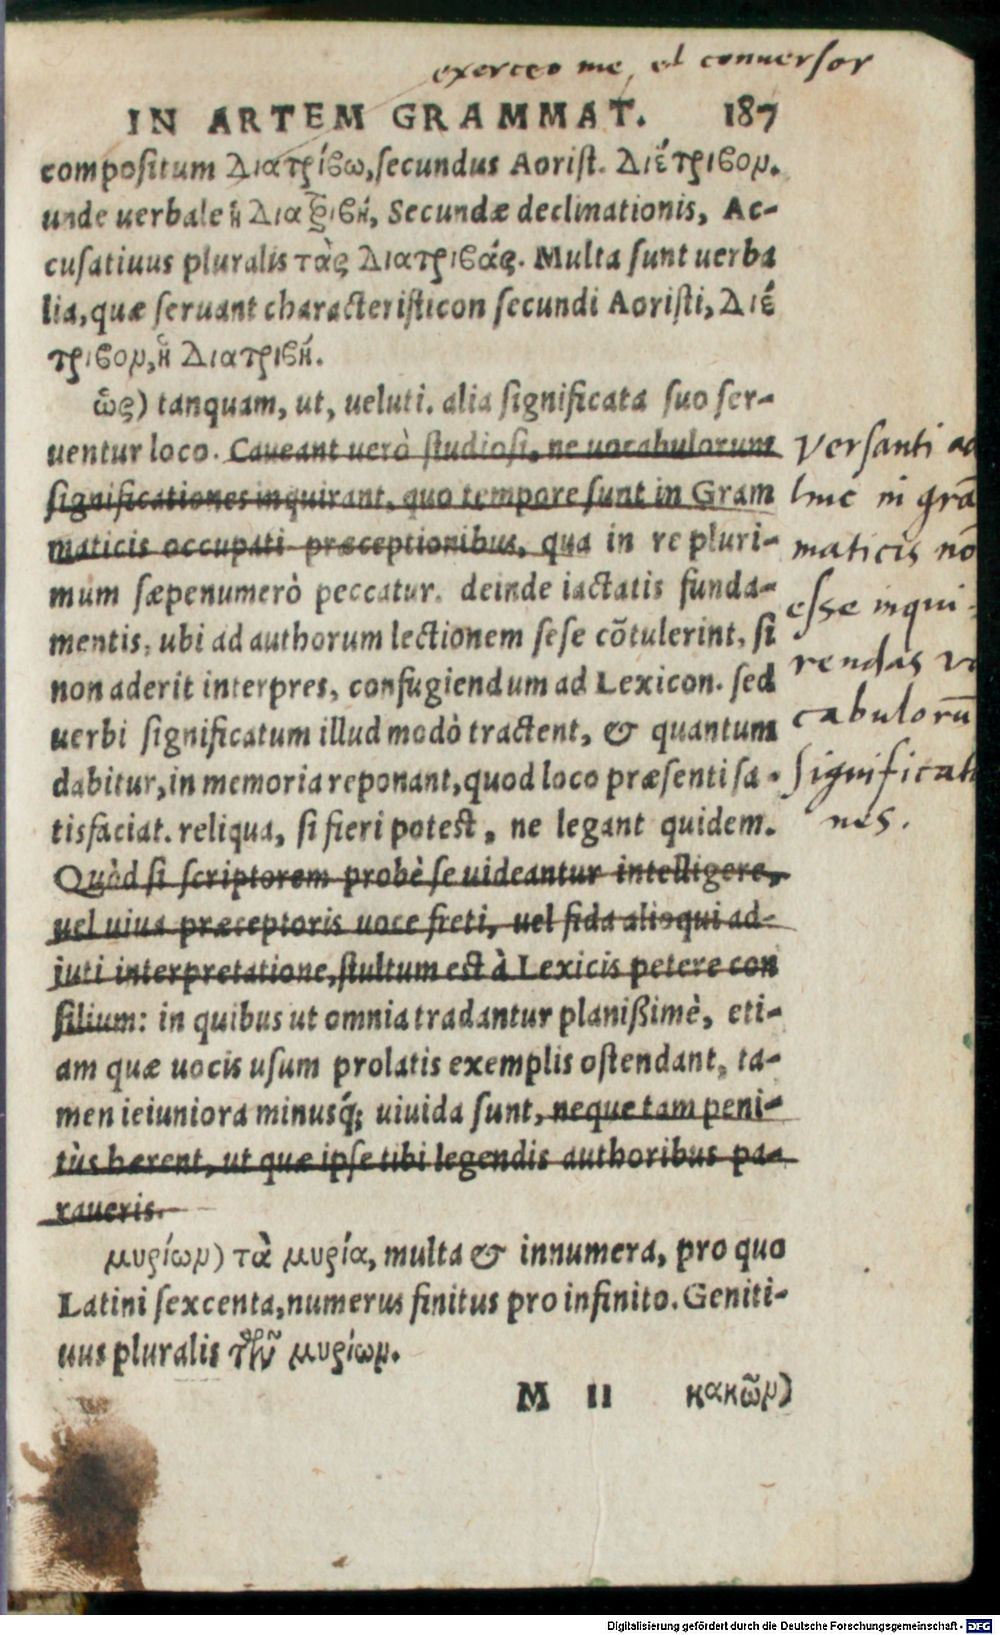 exerceo me, el conuersor
IN ARTEM GRAMMAT. 187
compositum Διατρίβω, secundus Aorist. Διέτριβον.
unde uerbale ἡ Διατριβή, Secundæ declinationis, Ac-
cusatiuus pluralis τὰς Διατριβάς. Multa sunt uerba
lia, quæ seruant characteristicon secundi Aoristi, Διέ
τριβον, ἡ Διατριβή.
ὡς) tanquam, ut, ueluti. alia significata suo ser-
uentur loco. Caueant uerò studiosi, ne uocabulorum
significationes inquirant, quo tempore sunt in Gram
maticis occupati præceptionibus, qua in re pluri-
mum sæpenumerò peccatur. deinde iactatis funda-
mentis, ubi ad authorum lectionem sese cõtulerint, si
non aderit interpres, confugiendum ad Lexicon. sed
uerbi significatum illud modò tractent, & quantum
dabitur, in memoria reponant, quod loco præsenti sa-
tisfaciat. reliqua, si fieri potest, ne legant quidem.
Quòd si scriptorem probè se uideantur intelligere,
uel uiua præceptoris uoce freti, uel fida alioqui ad-
iuti interpretatione, stultum est à Lexicis petere con
silium: in quibus ut omnia tradantur planißimè, eti-
am quæ uocis usum prolatis exemplis ostendant, ta-
men ieiuniora minusq́; uiuida sunt, neque tam peni-
tùs hærent, ut quæ ipse tibi legendis authoribus pa-
raueris.
μυρίων) τὰ μυρία, multa & innumera, pro quo
Latini sexcenta, numerus finitus pro infinito. Geniti-
uus pluralis τῶν μυρίων.
M II κακῶν)
Versanti ad
huc in grã
maticis nõ
esse inqui-
rendas vo
cabulorũ
significatio
nes.
Digitalisierung gefördert durch die Deutsche Forschungsgemeinschaft - DFG